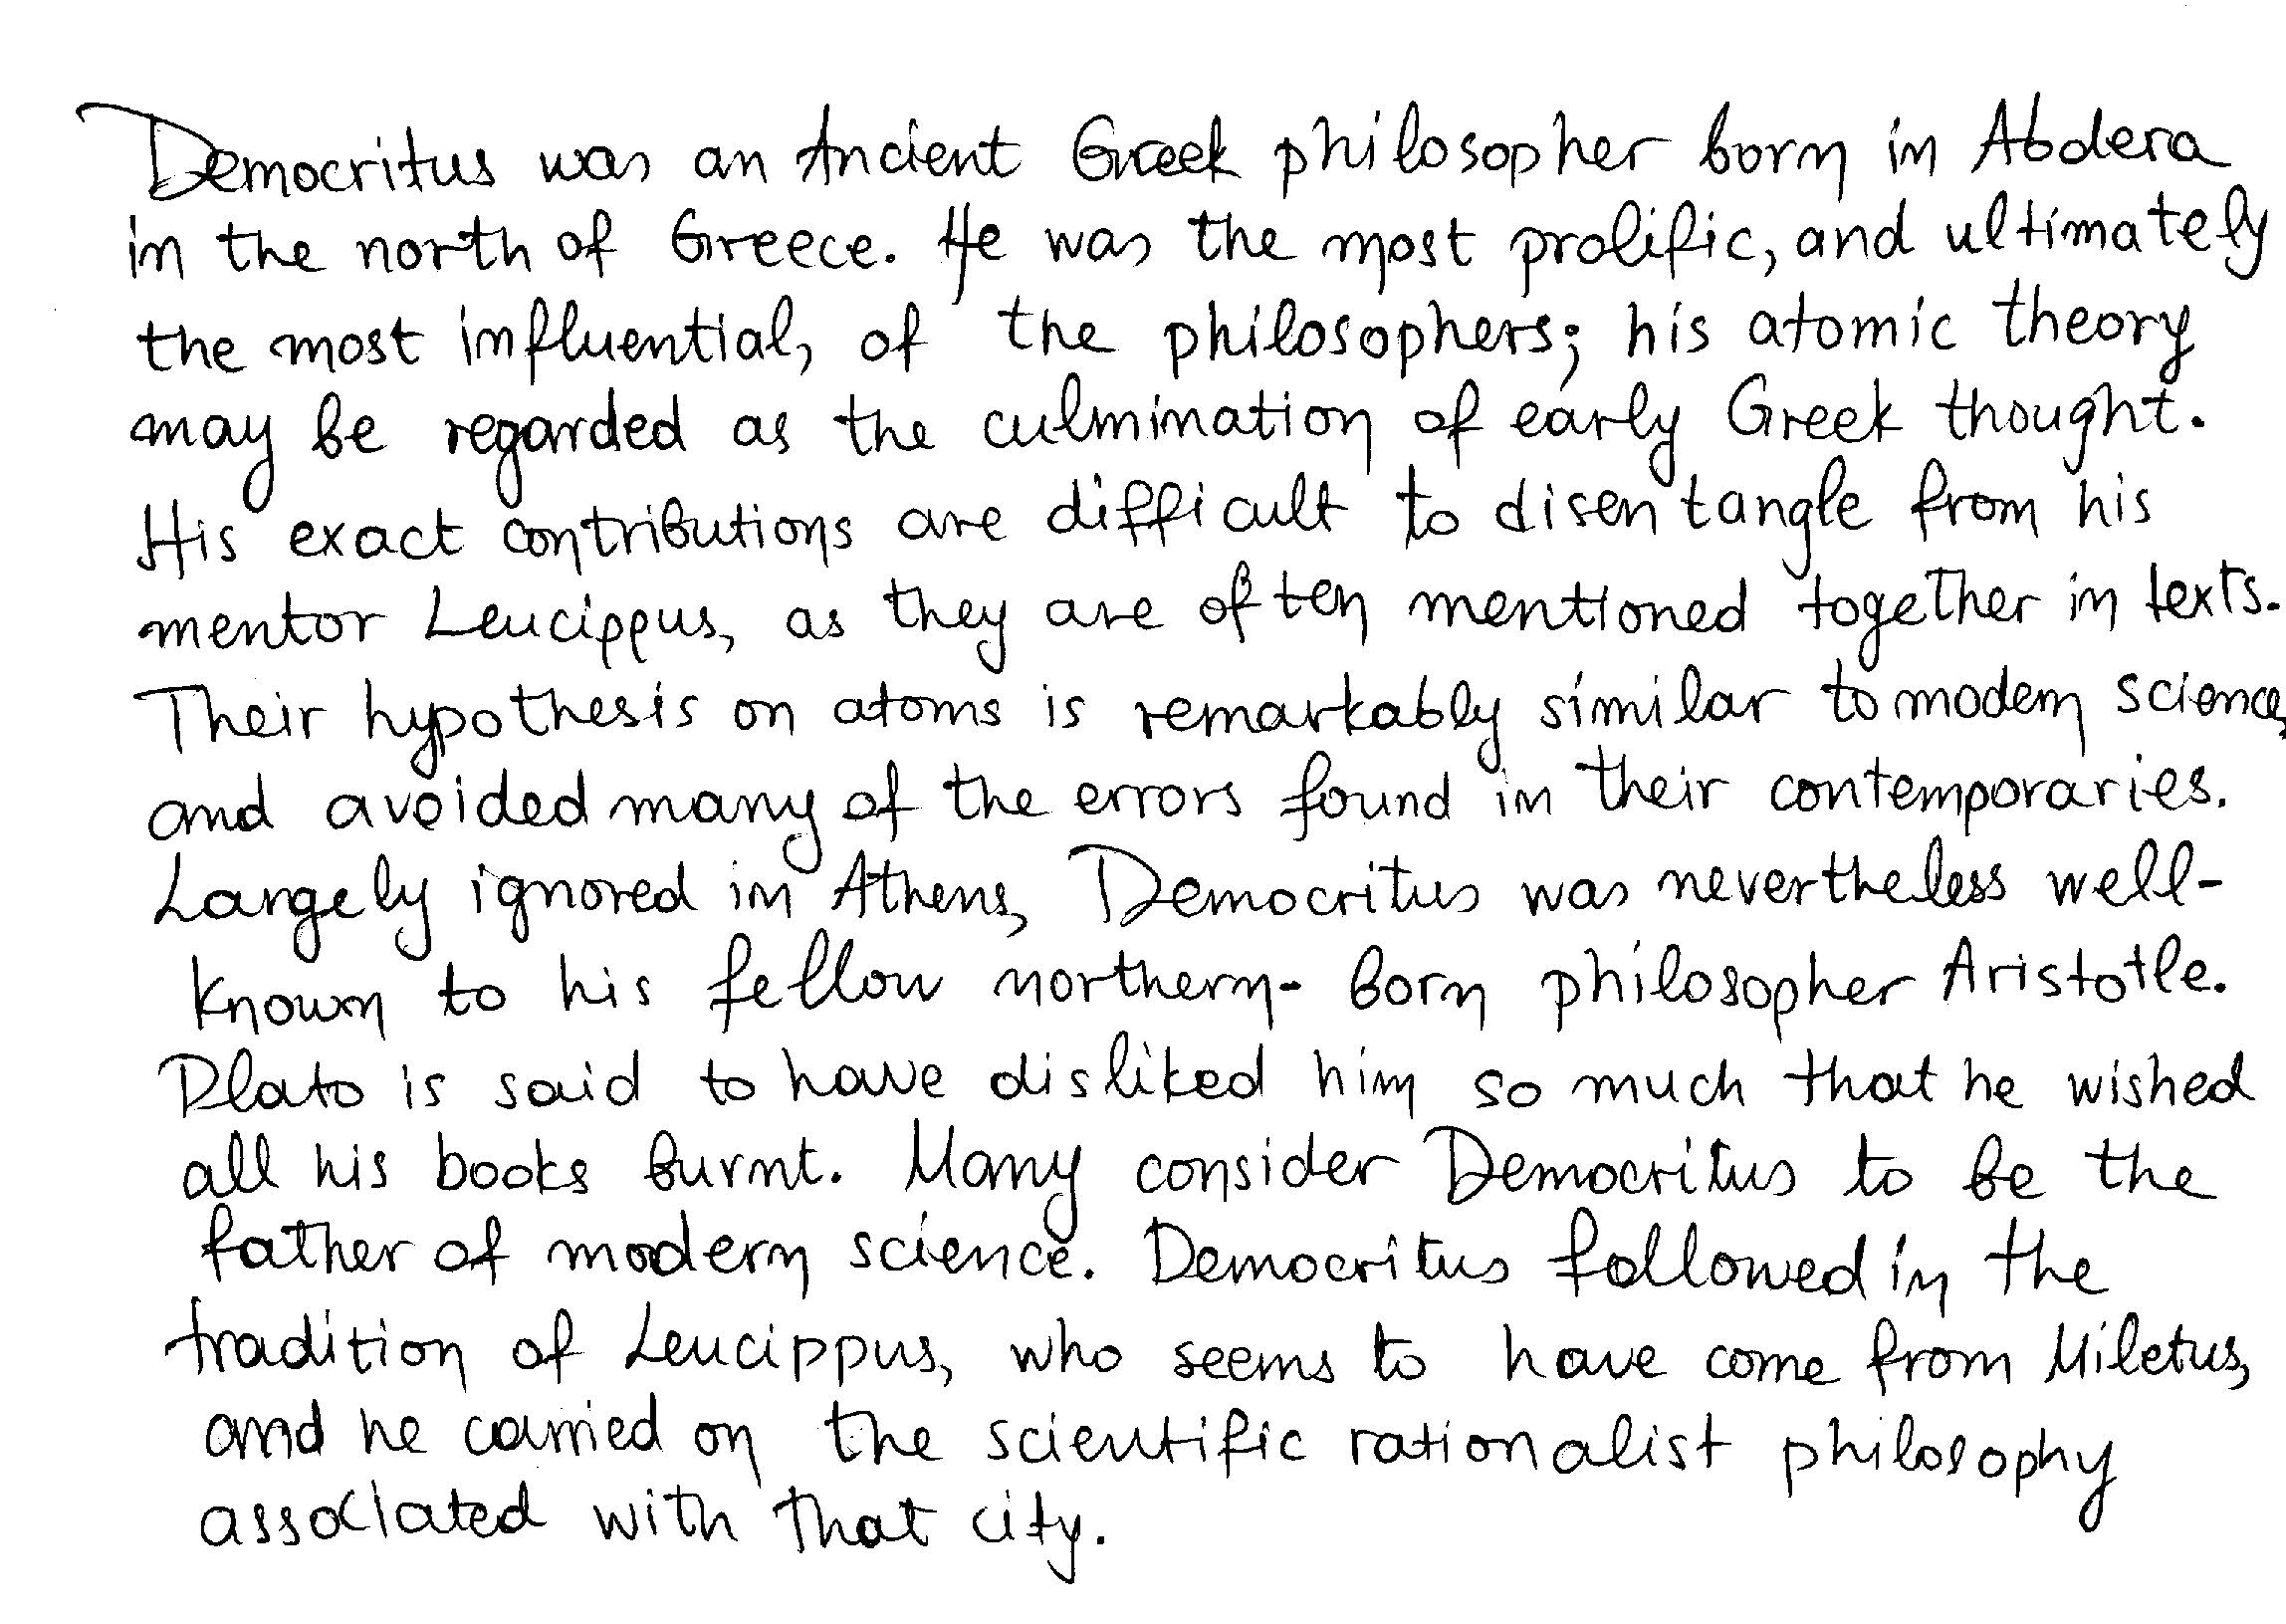 Democritus was an Ancient Greek philosopher born in Abdera
in the north of Greece. He was the most prolific, and ultimately
the most influential, of the philosophers; his atomic theory
may be regarded as the culmination of early Greek thought.
His exact contributions are difficult to disentangle from his
mentor Leucippus, as they are often mentioned together in texts.
Their hypothesis on atoms is remarkably similar to modern science,
and avoided many of the errors found in their contemporaries.
Largely ignored in Athens, Democritus was nevertheless well-
known to his fellow northern-born philosopher Aristotle.
Plato is said to have disliked him so much that he wished
all his books burnt. Many consider Democritus to be the
father of modern science. Democritus followed in the
tradition of Leucippus, who seems to have come from Miletus,
and he carried on the scientific rationalist philosophy
associated with that city.